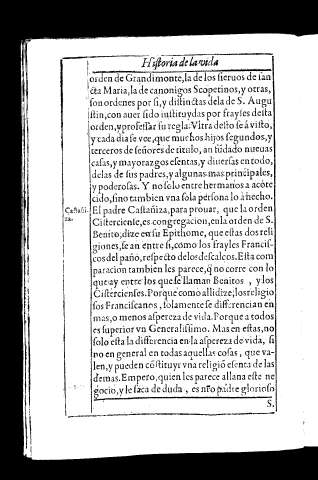 Historia de la vida
orden de Grandimonte, la de los sieruos de san
cta Maria, la de canonigos Scopetinos, y otras,
son ordenes por si, y distinctas dela de S. Augu
stin, con auer sido instituydas por frayles desta
orden, y professar su regla. Vltra desto se á visto,
y cada dia se vee, que muchos hijos segundos, y
terceros de señores de titulo, an fūdado nueuas
casas, y mayorazgos esentas, y diuersas en todo,
delas de sus padres, y algunas mas principales,
y poderosas. Y no solo entre hermanos a acōte
cido, sino tambien vna sola persona lo à hecho.
Castañi-
za.
El padre Castañiza, para prouar, que la orden
Cisterciense, es congregacion, en la orden de S.
Benito, dize en su Epithome, que estas dos reli
giones, se an entre si, como los frayles Francis-
cos del paño, respecto delos descalços. Esta com
paracion tambien les parece, q̄ no corre con lo
que ay entre los que se llaman Benitos, y los
Cistercienses. Porque como alli dize, los religio
sos Franciscanos, solamente se differencian en
mas, o menos aspereza de vida. Porque a todos
es superior vn Generalissimo. Mas en estas, no
solo esta la differencia en la aspereza de vida, si
no en general en todas aquellas cosas, que va-
len, y pueden cōstituyr vna religiō esenta de las
demas. Empero, quien les parece allana este ne
gocio, y le saca de duda, es nr̄o padre glorioso
S.